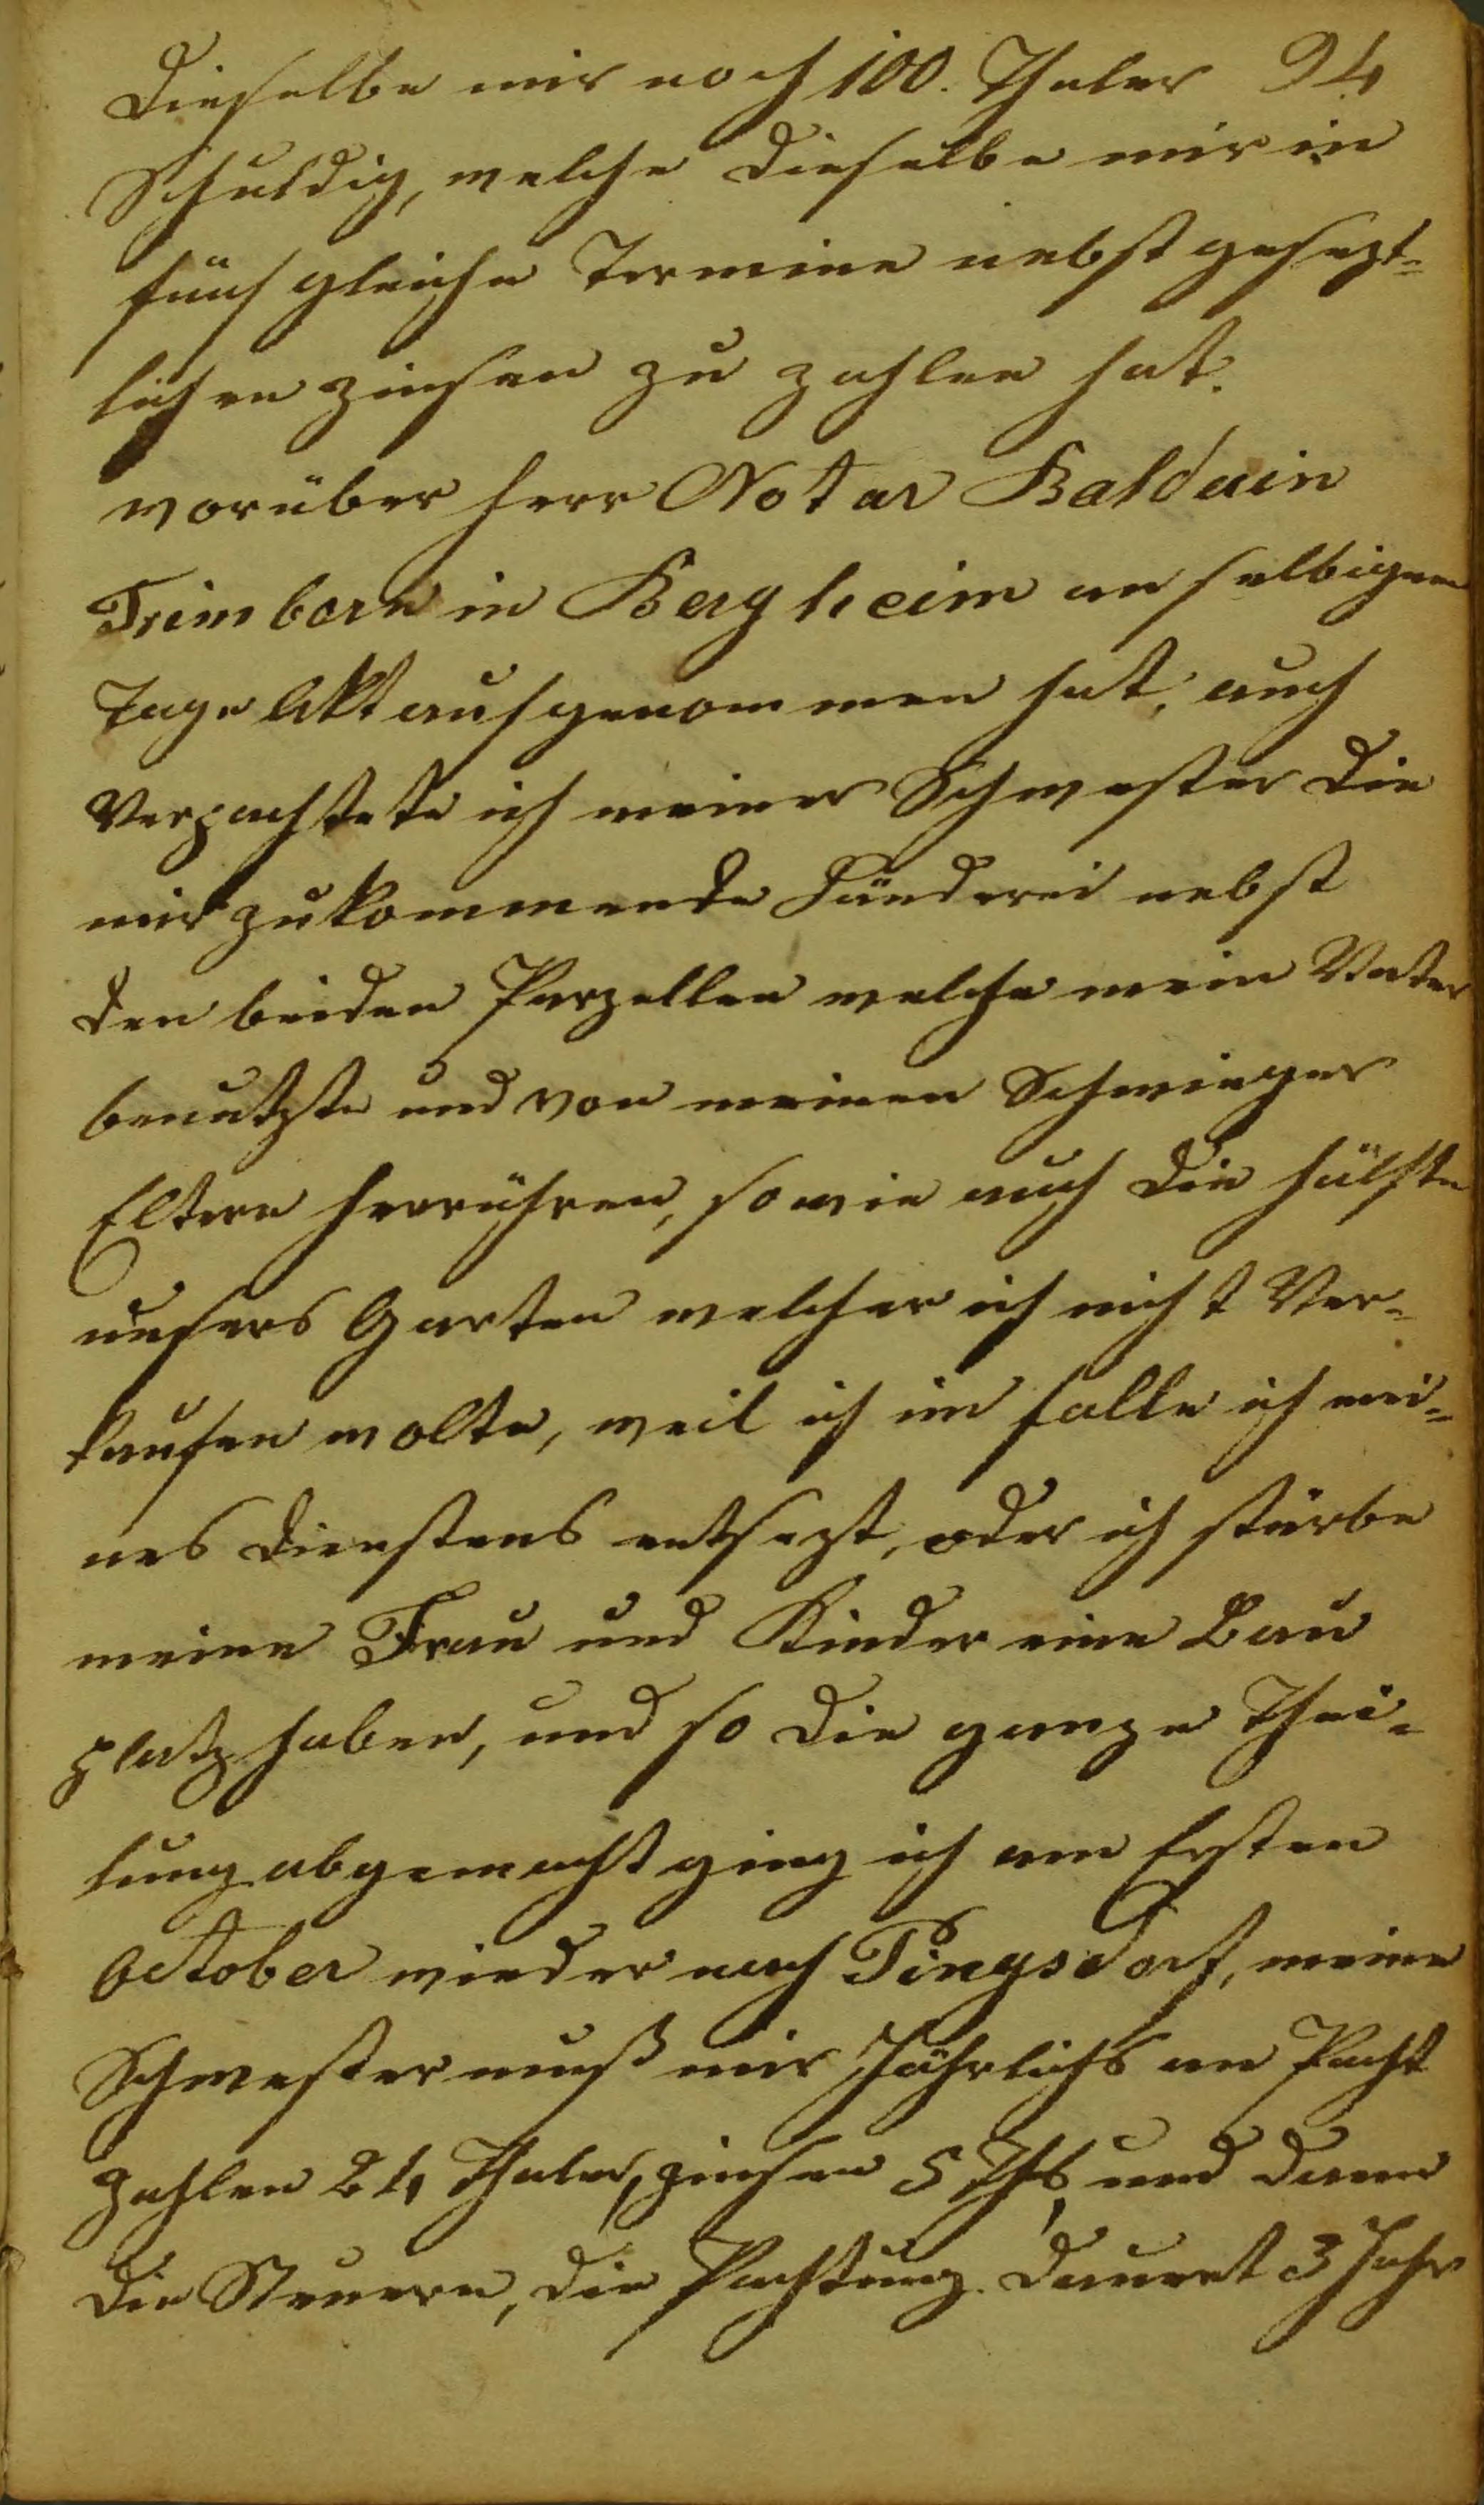 Dieselbe mir noch 100. Thaler 94
Schuldig, welche dieselbe mir in
fünf gleiche Termine nebst gesezt-
lichen zinsen zu zahlen hat.
worüber Herr Notar Balduin
Trimborn in Bergheim an selbigem
Tage Akt aufgenommen hat, auch
Verpachtete ich meiner Schwester die
mir zukommende Länderei nebst
den beiden Parzellen welche mein Vater
benutzte und von meinen Schwieger
Eltern herrühren, sowie auch die hälfte
unsers Garten welcher ich nicht Ver-
kaufen wolte, weil ich im falle ich mei-
nes Dienstens entsezt, oder ich stürbe
meine Frau und Kinder eine Bau
platz haben, und so die ganze Thei-
lung abgemacht ging ich am Ersten
October wieder nach Pingsdorf, meine
Schwester muß mir Jährlichs an Pacht
Zahlen 24 Thaler, zinsen 5 Thlr, und dann
die Steuern, die Pachtung dauert 3 Jahr